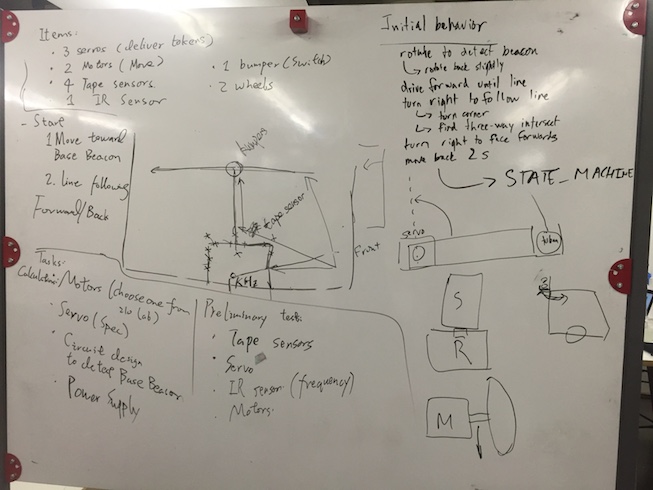 Items:
· 3 servos (deliver tokens)
· 2 Motors (Move)
· 4 Tape sensors
· 1 IR Sensor
· 1 bumper (Switch)
· 2 wheels
- Start
1 Move toward
Base Beacon
2. line following
Forward/Back
tape sensor
Front
KHz
Tasks:
Calculation: Motors (choose one from
210 lab)
· Servo (Spec)
· Circuit design
to detap Base Beacon
· Power Supply
Preliminary test:
· Tape sensors
· Servo
· IR sensor (frequency)
· Motors.
Initial behavior
rotate to detect beacon
rotate back slightly
drive forward until line
turn right to follow line
turn corner
find three-way intersect
turn right to face forwards
move back 2 s
STATE_MACHINE
servo
token
S
R
M